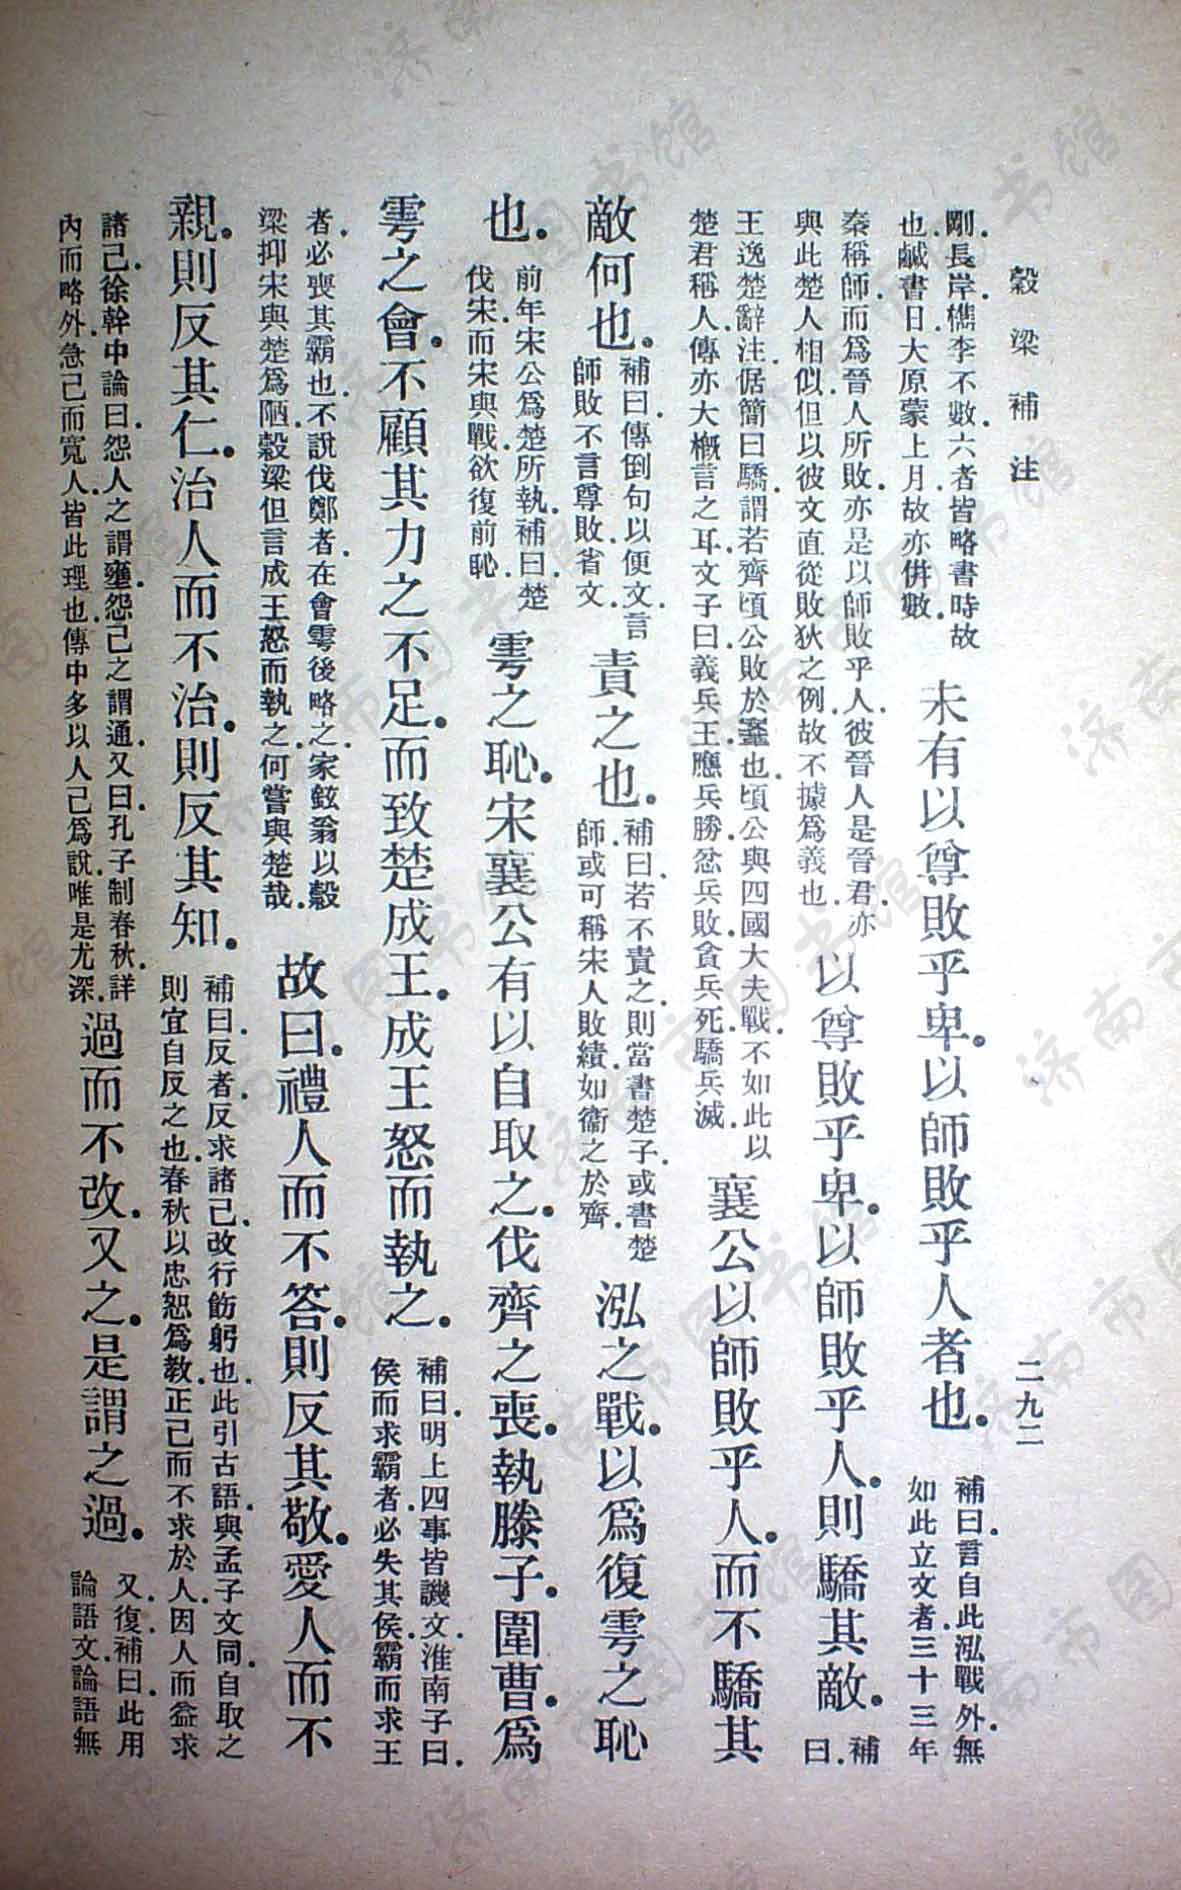 穀梁補注
二九二
剛。長岸。檇李不數。六者皆略書時。故
也。鹹書日。大原蒙上月。故亦倂數。
未有以尊敗乎卑。以師敗乎人者也。
補曰。言自此泓戰外。無
如此立文者。三十三年
秦稱師。而爲晉人所敗。亦是以師敗乎人。彼晉人是晉君。亦
與此楚人相似。但以彼文直從敗狄之例。故不據爲義也。
以尊敗乎卑。以師敗乎人。則驕其敵。
補
曰。
王逸楚辭注。倨簡曰驕。謂若齊頃公敗於鞌也。頃公與四國大夫戰。不如此以
楚君稱人。傳亦大槪言之耳。文子曰。義兵王。應兵勝。忿兵敗。貪兵死。驕兵滅。
襄公以師敗乎人。而不驕其
敵何也。
補曰。傳倒句以便文。言
師敗不言尊敗。省文。
責之也。
補曰。若不責之。則當書楚子。或書楚
師。或可稱宋人敗績。如衞之於齊。
泓之戰。以爲復雩之恥
也。
前年宋公爲楚所執。補曰。楚
伐宋。而宋與戰。欲復前恥。
雩之恥。宋襄公有以自取之。伐齊之喪。執滕子。圍曹。爲
雩之會。不顧其力之不足。而致楚成王。成王怒而執之。
補曰。明上四事皆譏文。淮南子曰。
侯而求霸者。必失其侯。霸而求王
者。必喪其霸也。不說伐鄭者。在會雩後略之。家鉉翁以穀
梁抑宋與楚爲陋。穀梁但言成王怒而執之。何嘗與楚哉。
故曰。禮人而不答。則反其敬。愛人而不
親。則反其仁。治人而不治。則反其知。
補曰。反者。反求諸己。改行飭躬也。此引古語。與孟子文同。自取之
則宜自反之也。春秋以忠恕爲教。正己而不求於人。因人而益求
諸己。徐幹中論曰。怨人之謂壅。怨己之謂通。又曰。孔子制春秋。詳
內而略外。急己而寬人。皆此理也。傳中多以人己爲說。唯是尤深。
過而不改。又之。是謂之過。
又。復。補曰。此用
論語文。論語無
济南市图书馆